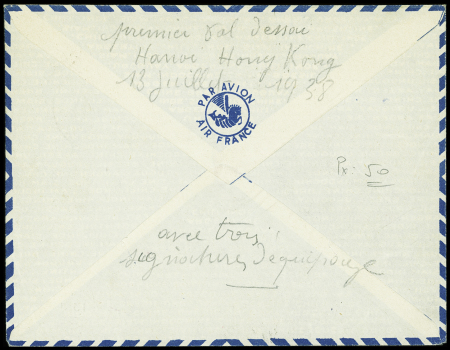 premier vol d'essai
Hanoi Hong Kong
13 Juillet 1938
PAR AVION
AIR FRANCE
Px: 50
avec trois
signatures d'equipage